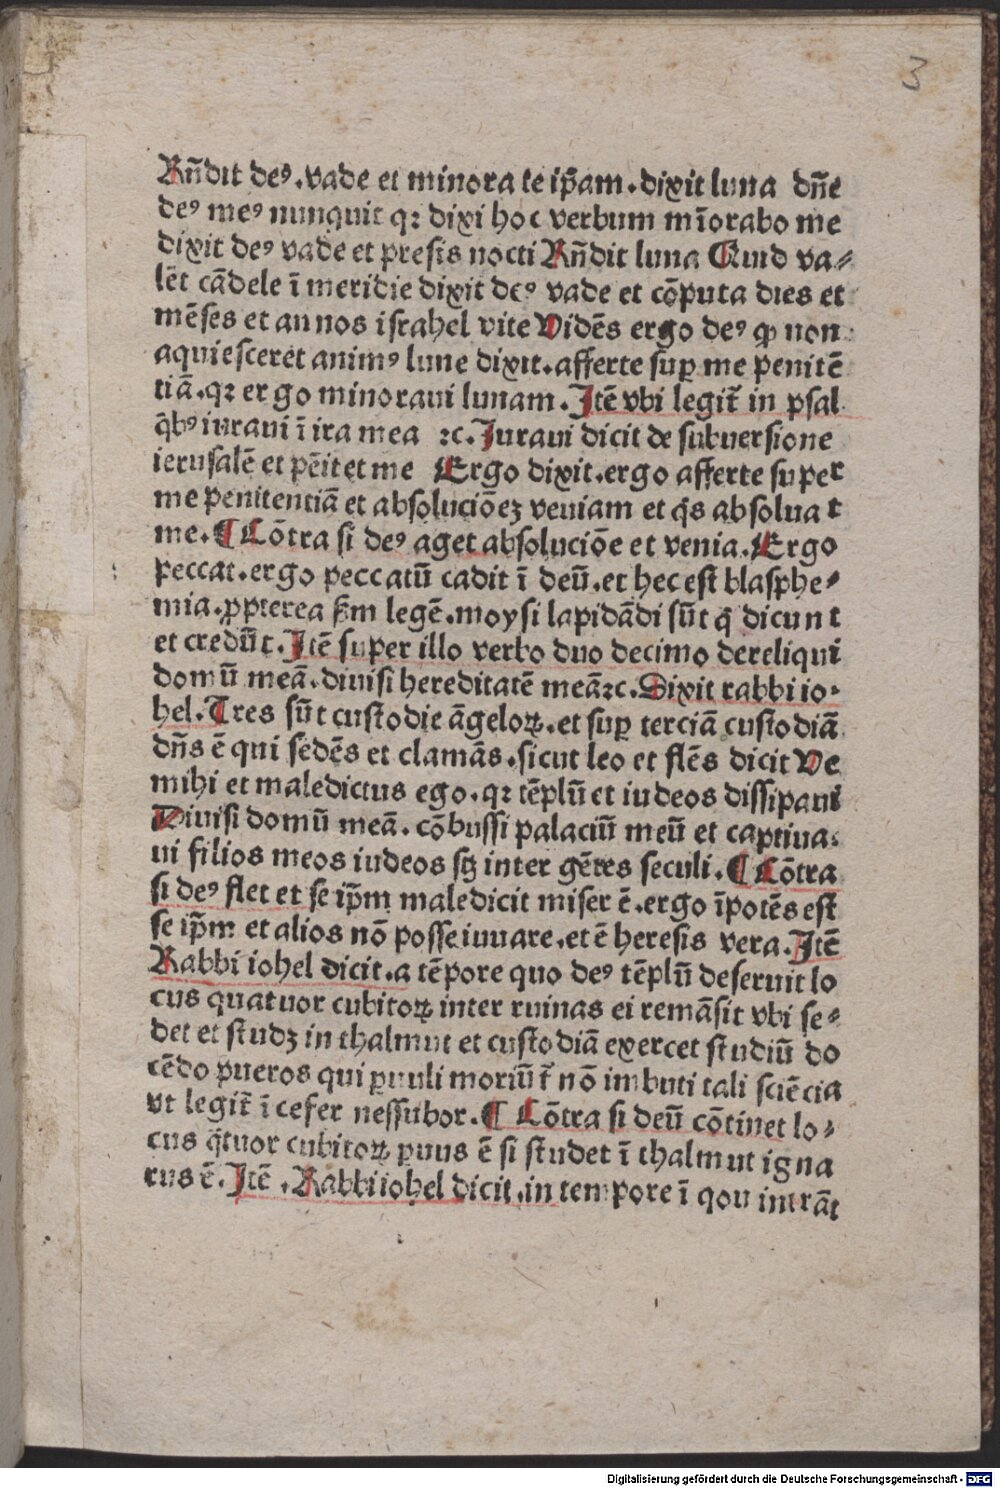 3
Rn̄dit deꝰ.vade et minora te ip̄am.dixit luna dn̄e
deꝰ meꝰ nunquit qꝛ dixi hoc verbum mīorabo me
dixit deꝰ vade et presis nocti Rn̄dit luna Quid va⸗
lēt cādele ī meridie dixit deꝰ vade et cōputa dies et
mēses et annos israhel vite Vidēs ergo deꝰ ꝙ non
aquiesceret animꝰ lune dixit.afferte suꝑ me penitē
tiā.qꝛ ergo minoraui lunam.Itē vbi legit᷑ in psal
q̄bꝰ iuraui ī ira mea ⁊c.Iuraui dicit de subuersione
ierusalē et pēitet me Ergo dixit.ergo afferte super
me penitentiā et absolucōeꝫ veniam et q̄s absoluat
me.¶ Cōtra si deꝰ aget absolucōe et venia.Ergo
peccat.ergo peccatū cadit ī deū.et hec est blasphe⸗
mia.ꝓpterea ẜm legē.moysi lapidādi sūt q̄ dicunt
et credūt.Itē super illo verbo duo decimo dereliqui
domū meā.diuisi hereditatē meā⁊c.Dixit rabbi io⸗
hel.Tres sūt custodie āgeloꝝ.et suꝑ terciā custodiā
dn̄s ē qui sedēs et clamās.sicut leo et flēs dicit Ve
mihi et maledictus ego.qꝛ tēplū et iudeos dissipaui
Diuisi domū meā.cōbussi palaciū meū et captiua⸗
ui filios meos iudeos sꝫ inter gētes seculi.¶ Cōtra
si deꝰ flet et se ip̄m maledicit miser ē.ergo īpotēs est
se ip̄m et alios nō posse iuuare.et ē heresis vera.Itē
Rabbi iohel dicit.a tēpore quo deꝰ tēplū deseruit lo
cus quatuor cubitoꝝ inter ruinas ei remāsit vbi se⸗
det et studꝫ in thalmut et custodiā exercet studiū do
cēdo pueros qui ꝑuuli moriūt᷑ nō imbuti tali sciēcia
vt legit᷑ ī cefer nessubor.¶ Cōtra si deū cōtinet lo⸗
cus q̄tuor cubitoꝝ ꝑuus ē si studet ī thalmut igna
rus ē.Itē.Rabbi iohel dicit.in tempore ī qou intrāt
Digitalisierung gefördert durch die Deutsche Forschungsgemeinschaft - DFG